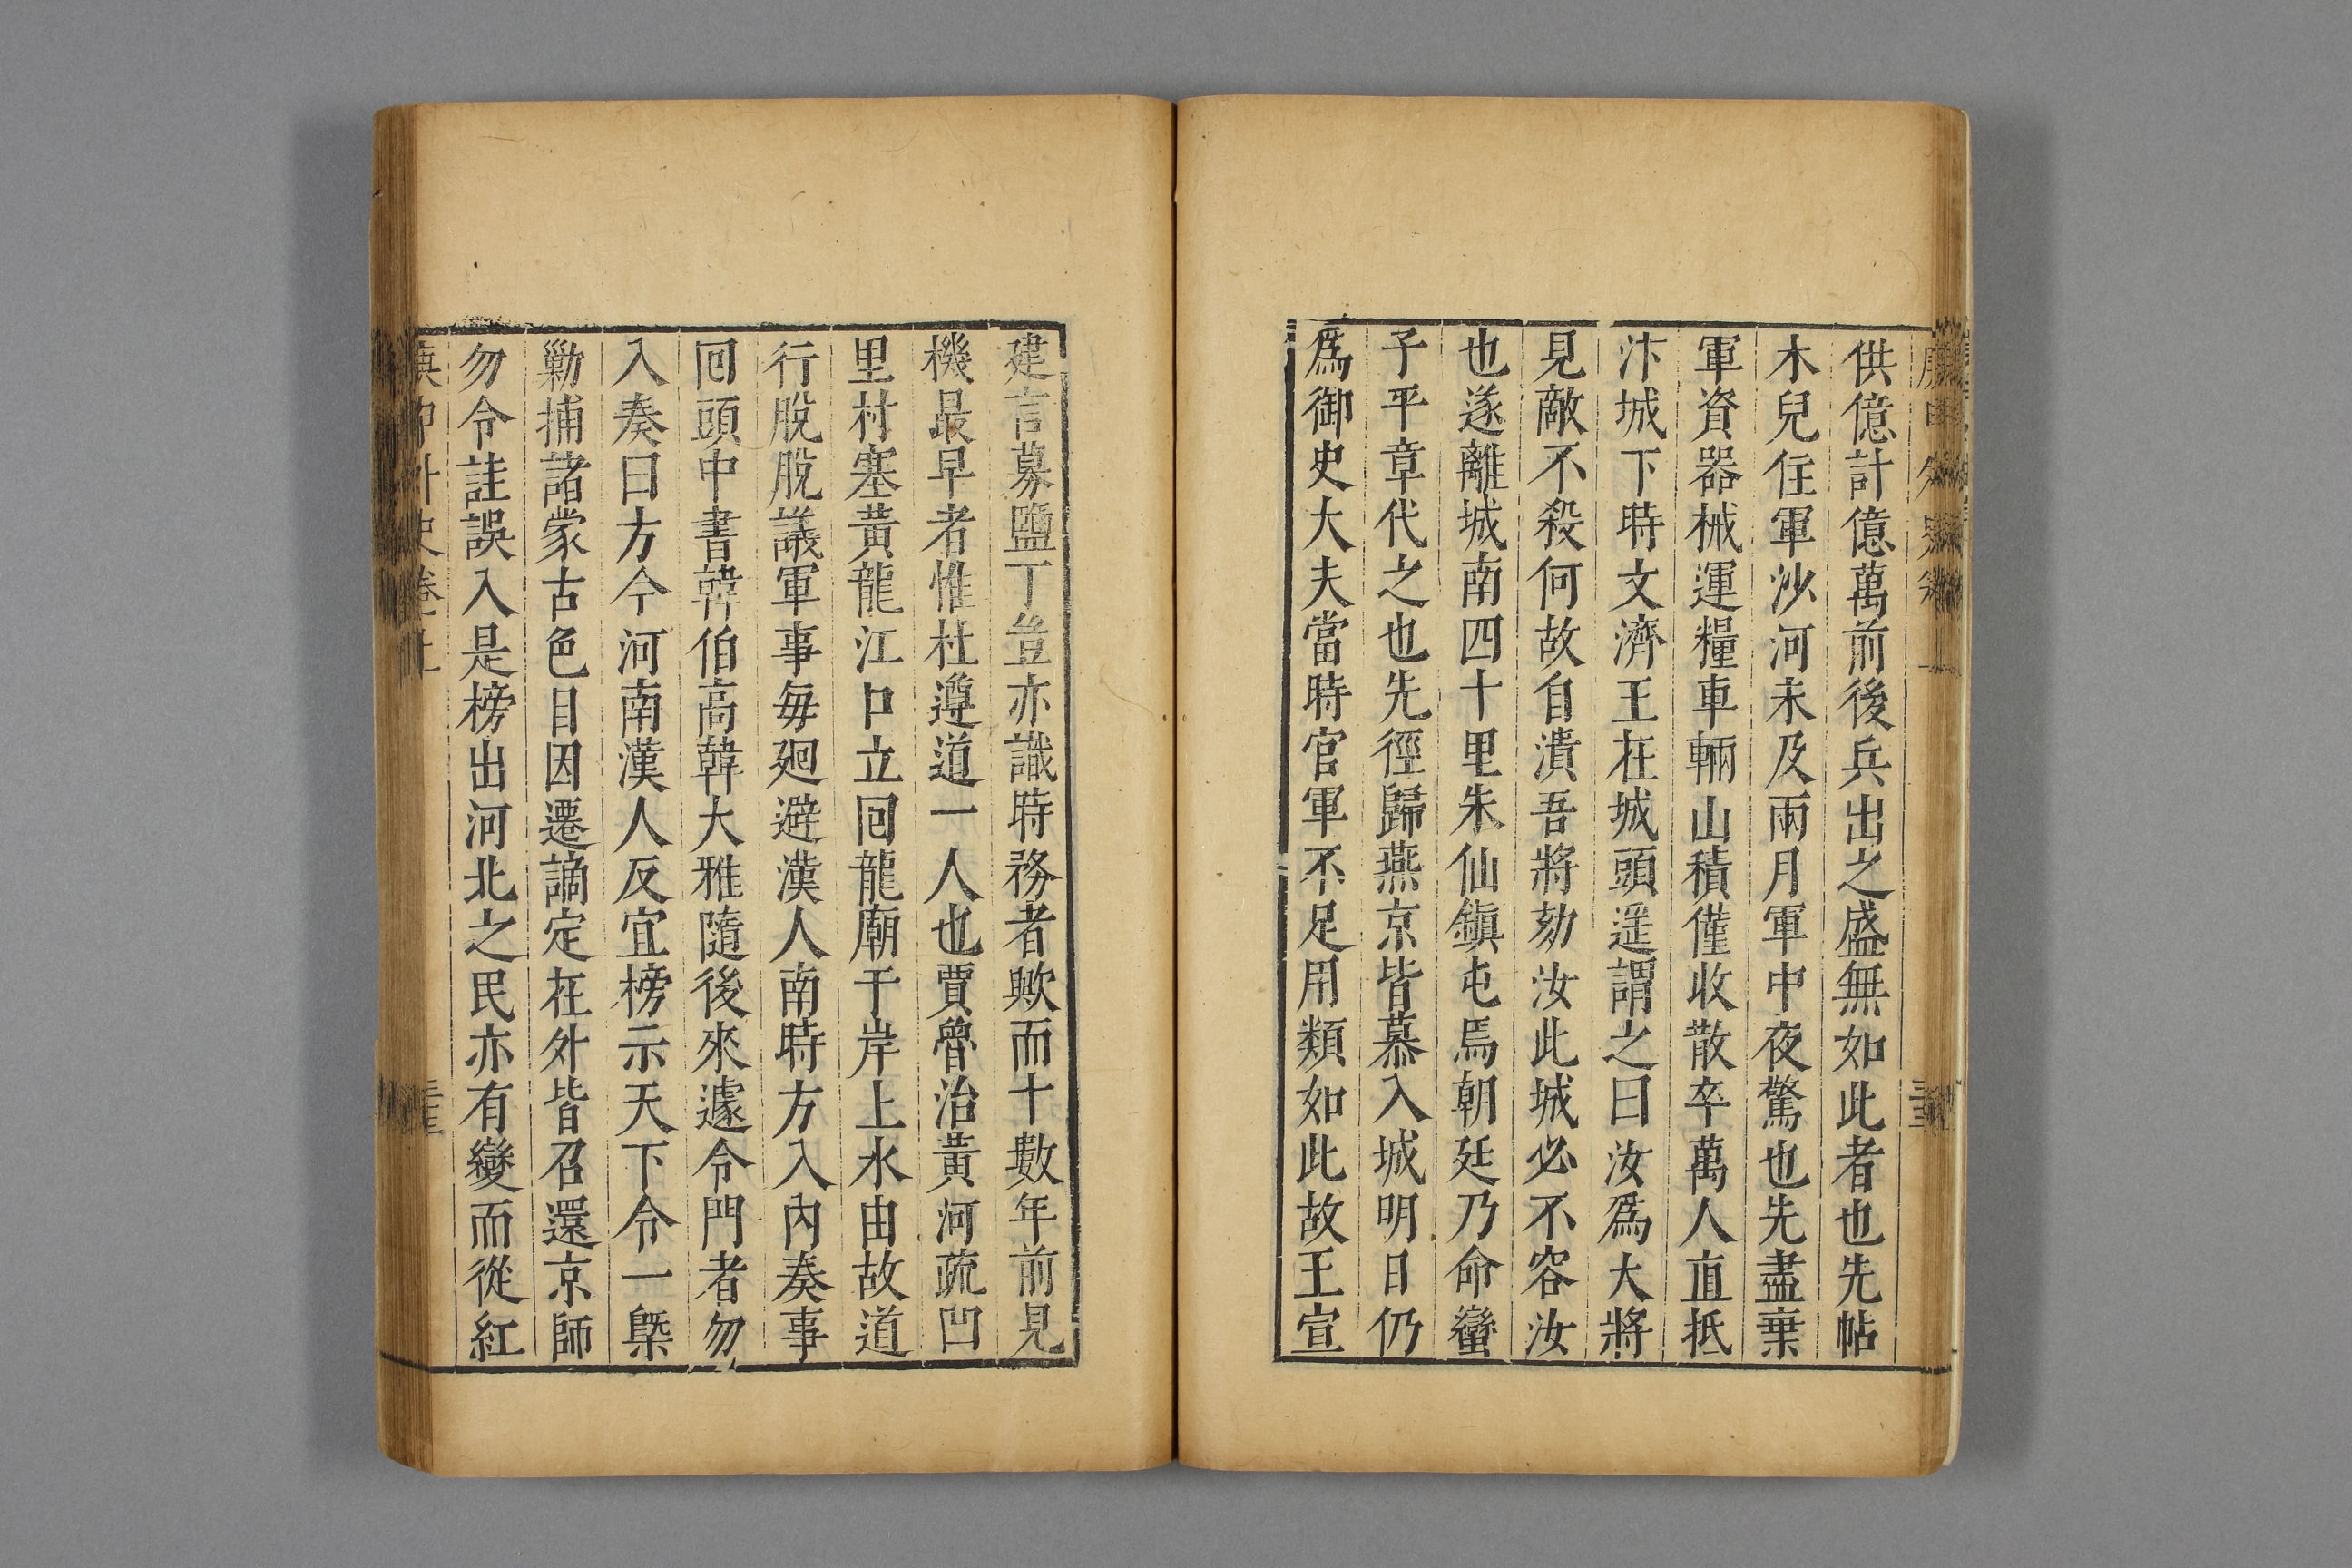 供億計億萬前後兵出之盛無如此者也先帖
木兒住軍沙河未及兩月軍中夜驚也先盡棄
軍資器械運糧車輛山積僅收散卒萬人直抵
汴城下時文濟王在城頭遥謂之曰汝爲大將
見敵不殺何故自潰吾將劾汝此城必不容汝
也遂離城南四十里朱仙鎮屯焉朝廷乃命蠻
子平章代之也先徑歸燕京皆慕入城明日仍
爲御史大夫當時官軍不足用類如此故王宣
建言募鹽丁豈亦識時務者歟而十數年前見
機最早者惟杜遵道一人也賈魯治黃河疏凹
里村塞黃龍江口立囘龍廟于岸上水由故道
行脫脫議軍事每廻避漢人南時方入內奏事
囘頭中書韓伯高韓大雅隨後來遽令門者勿
入奏曰方今河南漢人反宜榜示天下令一槩
勦捕諸蒙古色目因遷謫定在外皆召還京師
勿令詿誤入是榜出河北之民亦有變而從紅